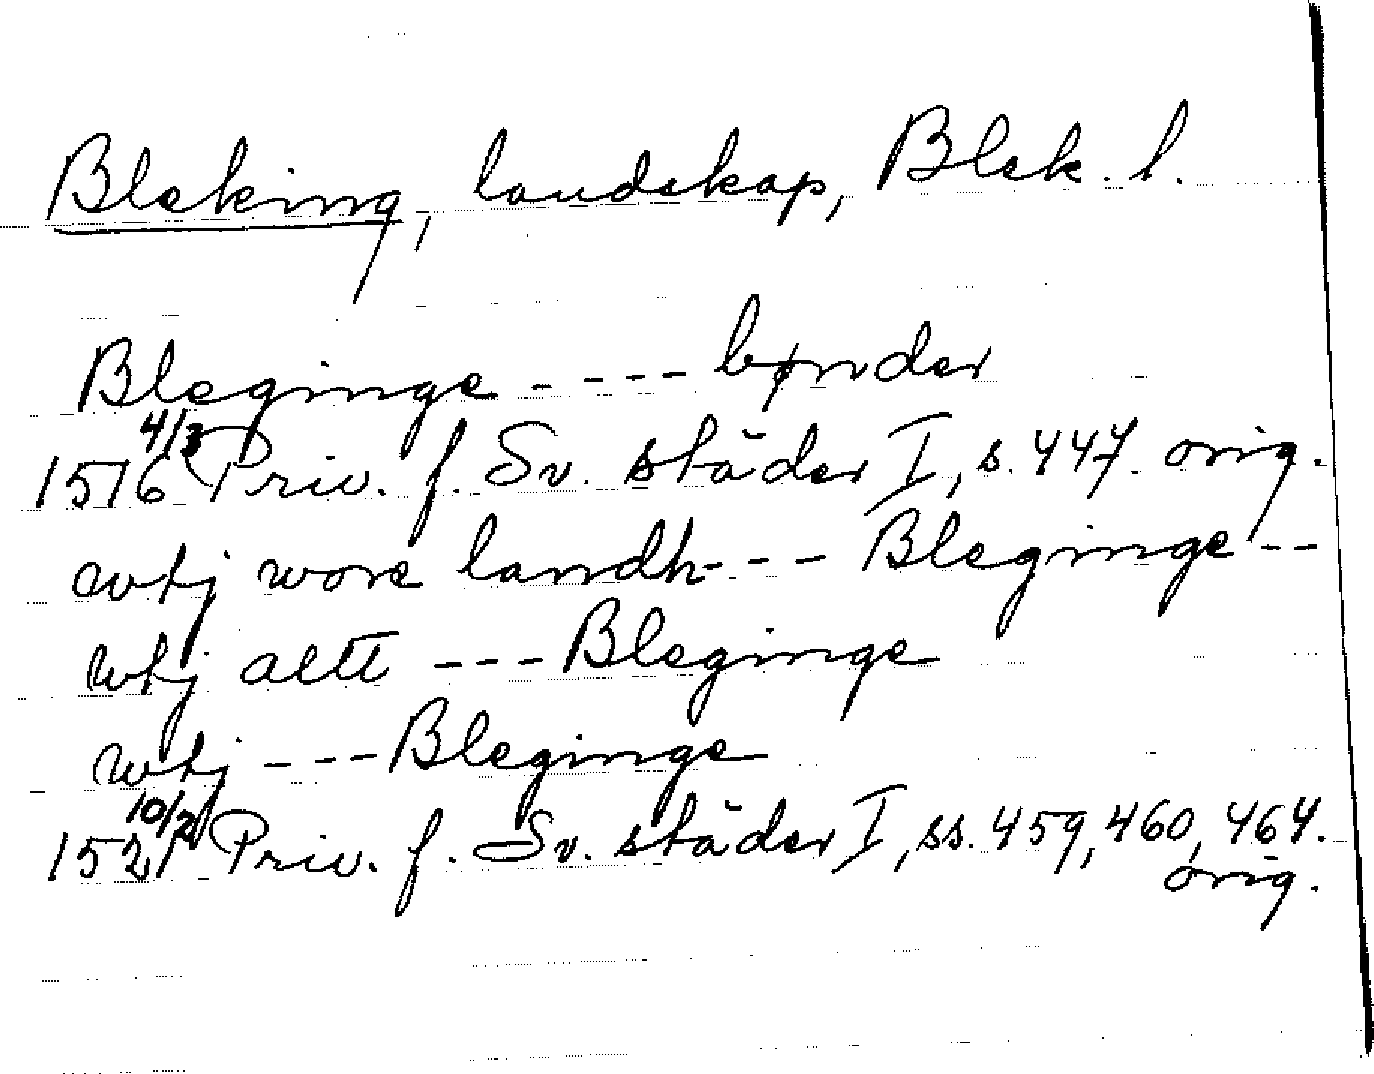 Bleking, landskap, Blek. l.
Bleginge - - - - bønder
1516 4/3 Priv. f. Sv. städer I, s. 447. orig.
wtj wore landh - - - Bleginge - -
wtj altt - - - Bleginge
wtj - - - Bleginge
1521 10/2 Priv. f. Sv. städer I, ss. 459, 460, 464.
orig.